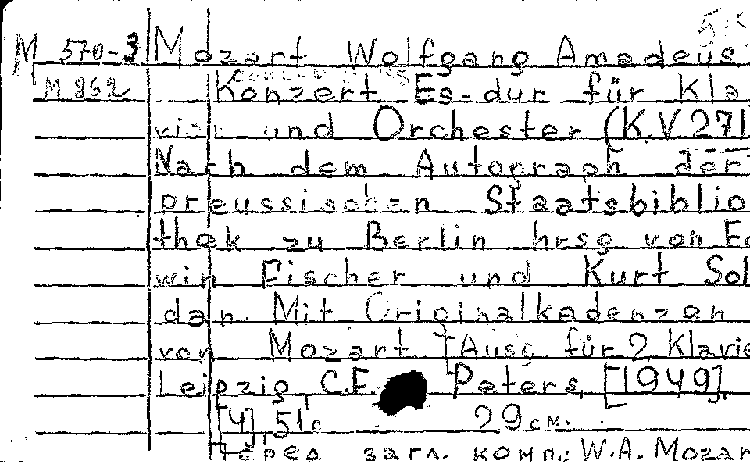 M 570-3 Mozart Wolfgang Amadeus
M 862 Konzert Es-dur für Kla
vier und Orchester (K.V.271
Nach dem Autograph der
preussischen Staatsbiblio
thek zu Berlin hrsg von Ed
win Fischer und Kurt Sol
dan. Mit Originalkadenzen
von Mozart [Ausg für 2 Klavie
Leipzig C.F. Peters, [1949].
[4] 51 с 29 см.
Перед загл. комп.: W.A. Mozar